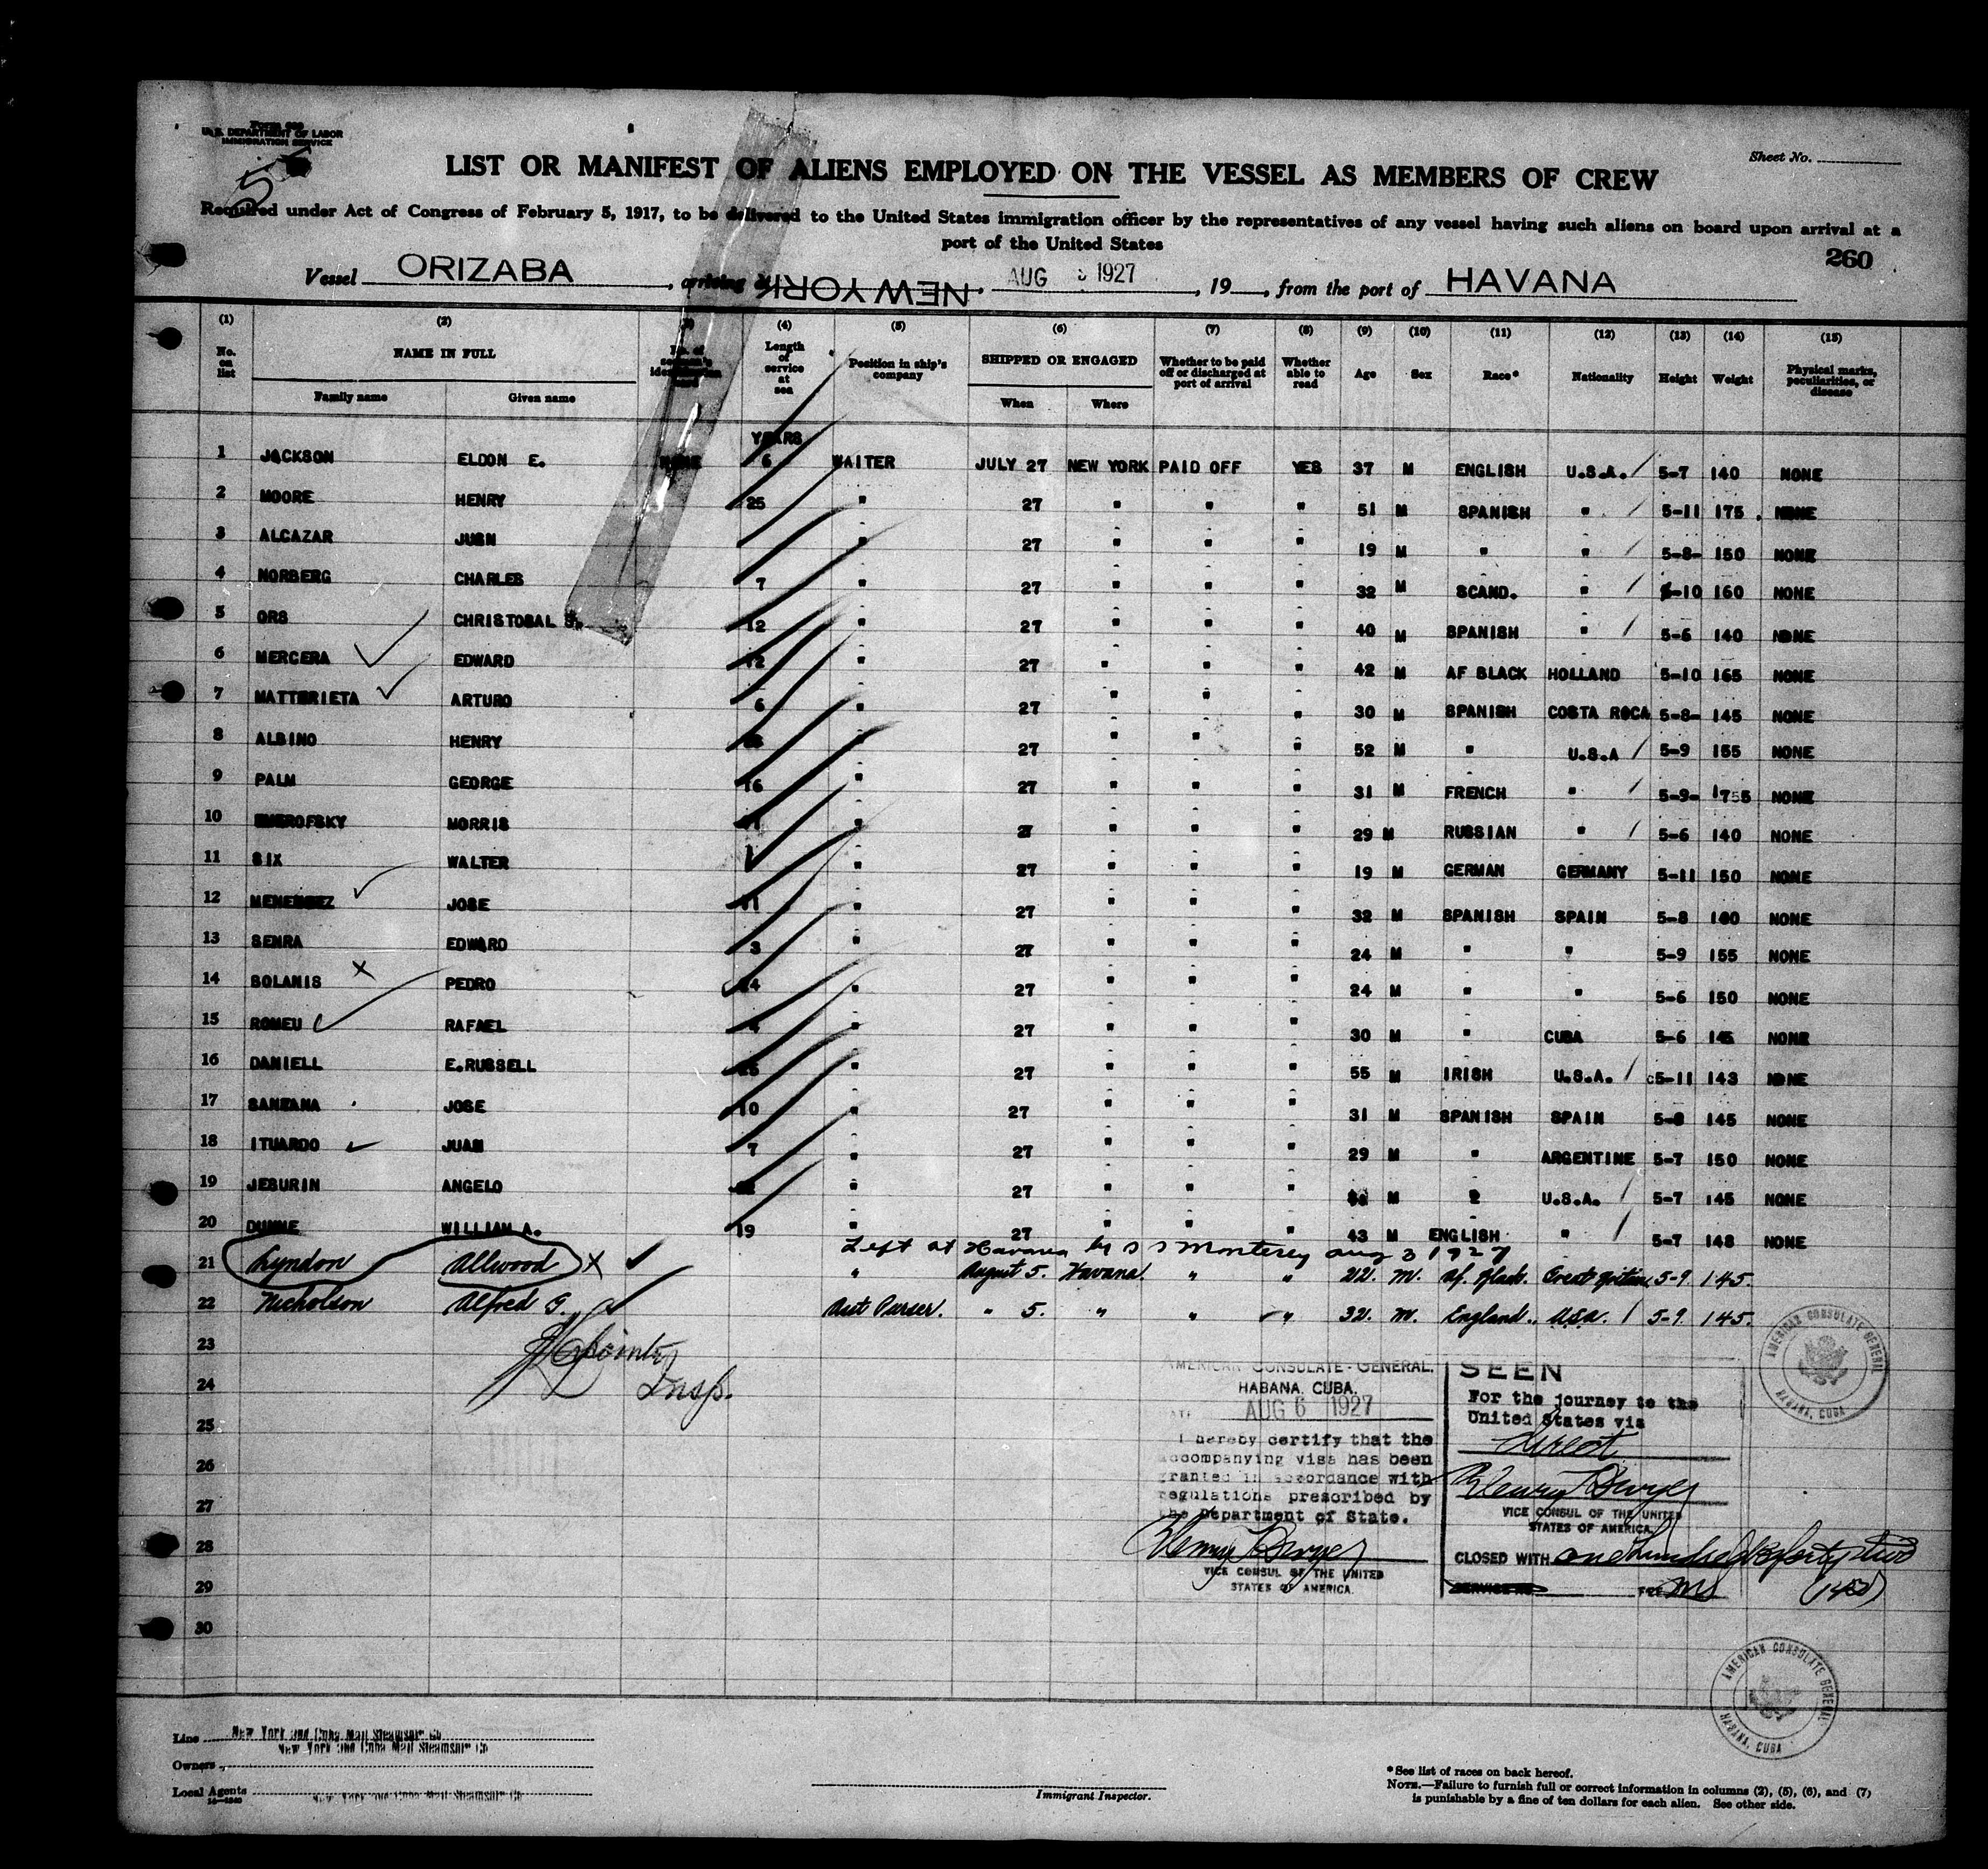 Form 689
U.S. DEPARTMENT OF LABOR
IMMIGRATION SERVICE
5
Sheet No.
LIST OR MANIFEST OF ALIENS EMPLOYED ON THE VESSEL AS MEMBERS OF CREW
Required under Act of Congress of February 5, 1917, to be delivered to the United States immigration officer by the representatives of any vessel having such aliens on board upon arrival at a
port of the United States
260
Vessel ORIZABA, arriving at NEW YORK, AUG 1927, 19, from the port of HAVANA
(1) (2) (3) (4) (5) (6) (7) (8) (9) (10) (11) (12) (13) (14) (15)
No. on list NAME IN FULL No. of seaman's identification card Length of service at sea Position in ship's company SHIPPED OR ENGAGED Whether to be paid off or discharged at port of arrival Whether able to read Age Sex Race* Nationality Height Weight Physical marks, peculiarities, or disease
Family name Given name When Where
YEARS
1 JACKSON ELDON E. NONE 6 WAITER JULY 27 NEW YORK PAID OFF YES 37 M ENGLISH U.S.A. / 5-7 140 NONE
2 MOORE HENRY 25 " 27 " " " 51 M SPANISH " / 5-11 175 . NONE
3 ALCAZAR JUSN " 27 " " " 19 M " " / 5-8- 150 NONE
4 NORBERG CHARLES 7 " 27 " " " 32 M SCAND. " / 5-10 160 NONE
5 ORS CHRISTOBAL S. 12 " 27 " " " 40 M SPANISH " / 5-6 140 NONE
6 MERCERA EDWARD 12 " 27 " " " 42 M AF BLACK HOLLAND 5-10 165 NONE
7 MATTERIETA ARTURO 6 " 27 " " " 30 M SPANISH COSTA ROCA 5-8- 145 NONE
8 ALBINO HENRY " 27 " " " 52 M " U.S.A / 5-9 155 NONE
9 PALM GEORGE 16 " 27 " " " 31 M FRENCH " / 5-9- 1755 NONE
10 MORRIS " 27 " " " 29 M RUSSIAN " / 5-6 140 NONE
11 SIX WALTER " 27 " " " 19 M GERMAN GERMANY 5-11 150 NONE
12 MENENDEZ JOSE 11 " 27 " " " 32 M SPANISH SPAIN 5-8 NONE
13 SENRA EDWARD 3 " 27 " " " 24 M " " 5-9 155 NONE
14 BOLANIS X PEDRO " 27 " " " 24 M " " 5-6 150 NONE
15 ROMEU RAFAEL 4 " 27 " " " 30 M " CUBA 5-6 145 NONE
16 DANIELL E.RUSSELL " 27 " " " 55 M IRISH U.S.A. / 5-11 143 NONE
17 SANTANA JOSE 10 " 27 " " " 31 M SPANISH SPAIN 5-8 145 NONE
18 ITUARDO JUAN 7 " 27 " " " 29 M " ARGENTINE 5-7 150 NONE
19 JESURIN ANGELO " 27 " " " M 2 U.S.A. / 5-7 145 NONE
20 DUNNE WILLIAM A. 19 " 27 " " " 43 M ENGLISH " / 5-7 148 NONE
Left at Havana by S S Monterey Aug 3 1927
21 Lyndon Allwood X " August 5. Havana. " " 22. M. Af. Black. Great Britain 5-9. 145.
22 Nicholson Alfred G. Asst Purser. " 5. " " " 32. M. England. U.S.A. / 5-9. 145.
23
Insp.
24
25
26
27
28
29
30
AMERICAN CONSULATE-GENERAL.
HABANA, CUBA.
AUG 6 1927
I hereby certify that the
accompanying visa has been
granted in accordance with
regulations prescribed by
the Department of State.
Henry T Dwyer
VICE CONSUL OF THE UNITED
STATES OF AMERICA.
SEEN
For the journey to the
United States via
direct
Henry T Dwyer
VICE CONSUL OF THE UNITED
STATES OF AMERICA.
CLOSED WITH one hundred & forty two
(142)
SERVICE NO. FEE
AMERICAN CONSULATE GENERAL
HABANA, CUBA
AMERICAN CONSULATE GENERAL
HABANA, CUBA
Line New York and Cuba Mail Steamship Co
Owners New York and Cuba Mail Steamship Co
Local Agents New York and Cuba Mail Steamship Co
Immigrant Inspector.
*See list of races on back hereof.
NOTE.—Failure to furnish full or correct information in columns (2), (5), (6), and (7)
is punishable by a fine of ten dollars for each alien. See other side.